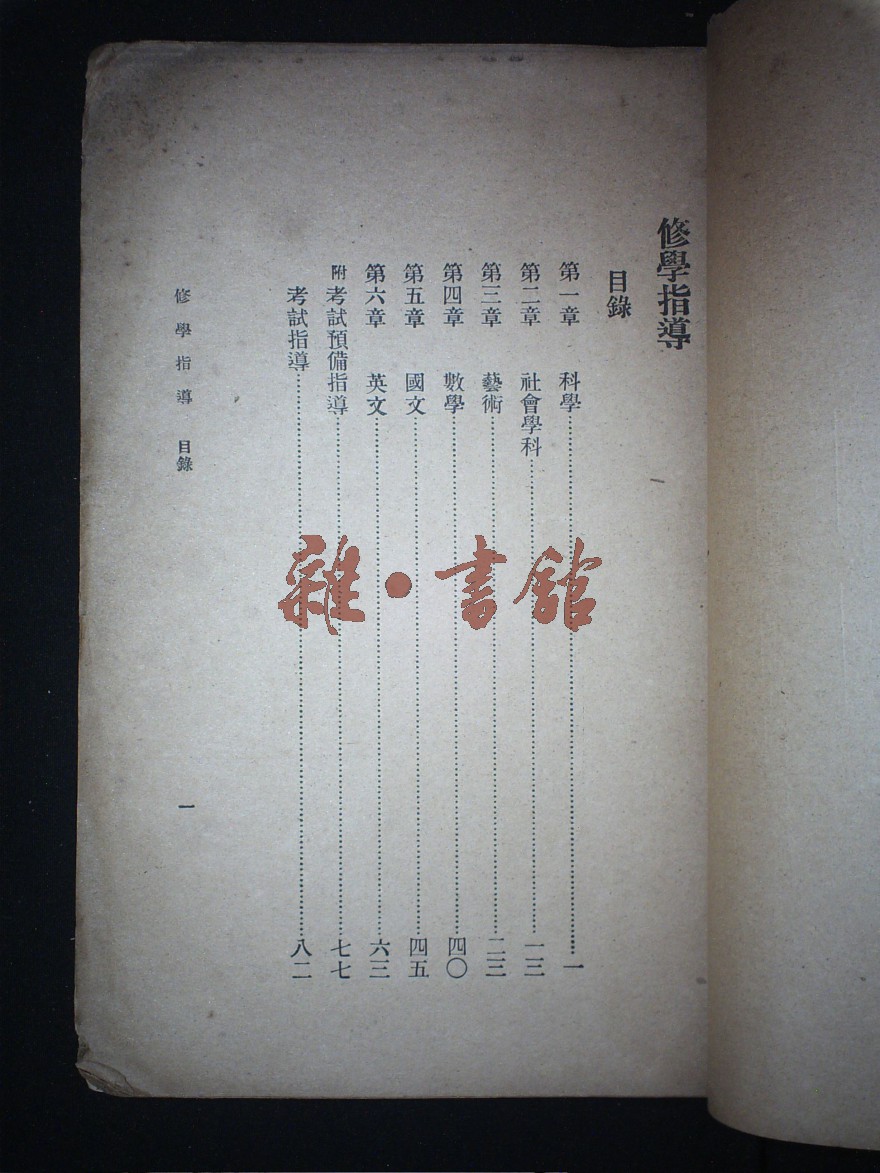 修學指導
目錄
第一章 科學……一
第二章 社會學科……一三
第三章 藝術……二三
第四章 數學……四〇
第五章 國文……四五
第六章 英文……六三
附考試預備指導……七七
考試指導……八二
修學指導 目錄 一
雜·書館